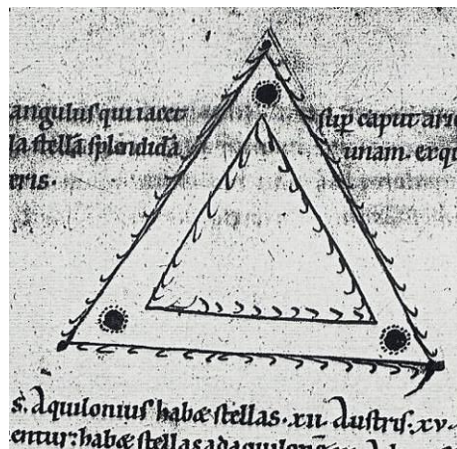 angulus qui iacet sup caput arie
la stellā splendidā unam. et qu
eris.
s. Aquilonius habæ stellas .xii. Austris .xv.
entur: habæ stellas ad aquilonē